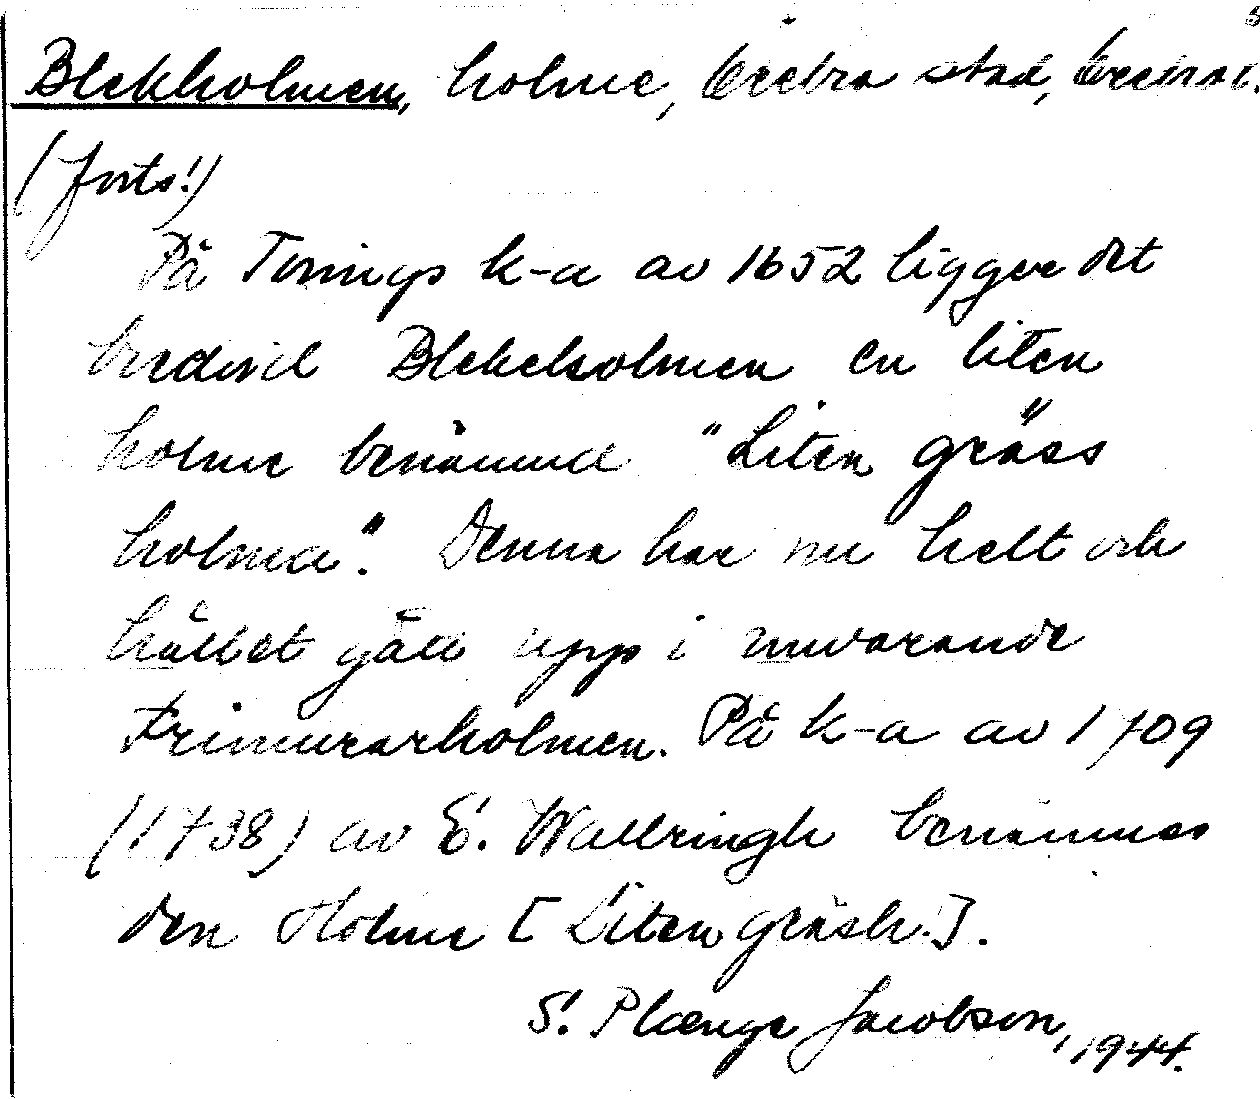 Blekholmen, holme, Örebro stad, Örebro l.
(forts.)
På Tomings k-a av 1652 ligger det
bredvid Blekeholmen en liten
holme benämnd "Liten gräss
holma". Denna har nu helt och
hållet gått upp i nuvarande
Frimurarholmen. På k-a av 1709
(1738) av E. Wallringh benämnes
den Holme [Liten gräsh.].
S. Plænge Jacobson, 1944.